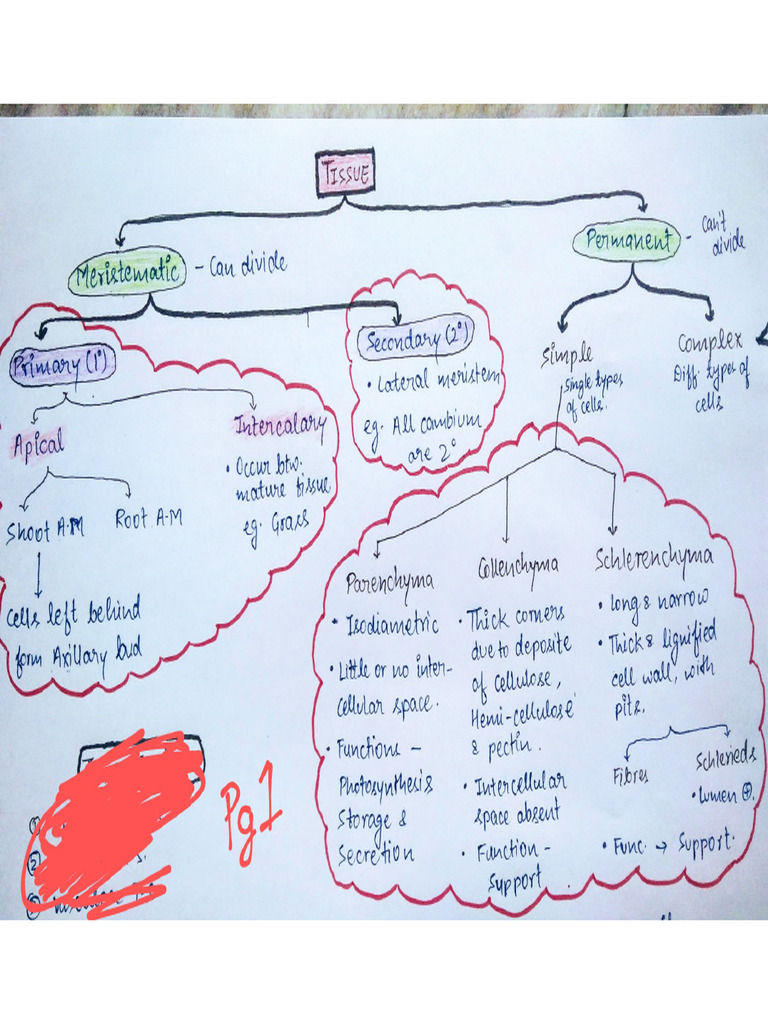 TISSUE
Meristematic
- Can divide
Permanent
- Can't
divide
Primary (1°)
Secondary (2°)
• Lateral meristem
eg. All cambium
are 2°
Simple
Single types
of cells.
Complex
Diff. types of
cells
Apical
Intercalary
• Occur btw.
mature tissue
eg. Grass
Shoot A.M
Root A.M
Cells left behind
form Axillary bud
Parenchyma
• Isodiametric
• Little or no inter-
cellular space.
• Functions -
Photosynthesis
Storage &
Secretion
Collenchyma
• Thick corners
due to deposite
of cellulose,
Hemi-cellulose
& pectin.
• Intercellular
space absent
• Function -
Support
Schlerenchyma
• Long & narrow
• Thick & lignified
cell wall, with
pits.
Fibres
Schlerieds
• Lumen ⊕.
• Func. → Support.
Pg 1
①
②
③